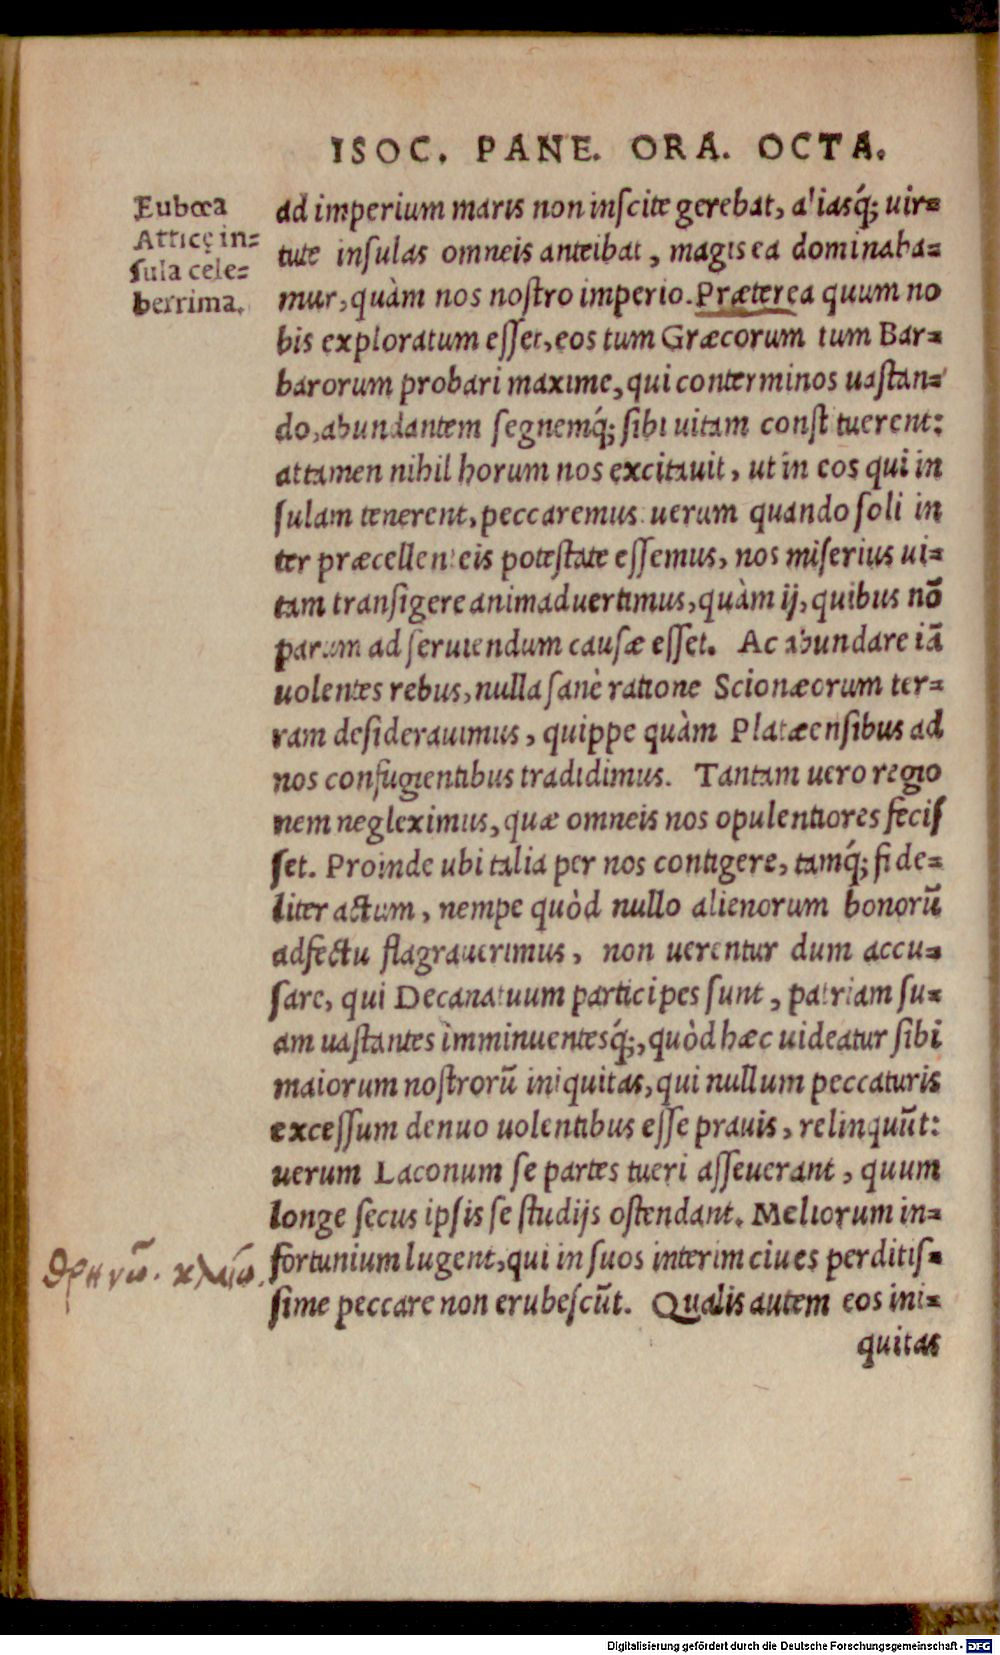 ISOC. PANE. ORA. OCTA.
Eubœa
Atticę in=
sula cele=
berrima.
ad imperium maris non inscite gerebat, aliasq́; uir=
tute insulas omneis anteibat, magis ea dominaba=
mur, quàm nos nostro imperio. Præterea quum no
bis exploratum esset, eos tum Græcorum tum Bar=
barorum probari maxime, qui conterminos uastan=
do, abundantem segnemq́; sibi uitam constituerent:
attamen nihil horum nos excitauit, ut in eos qui in
sulam tenerent, peccaremus. uerum quando soli in
ter præcellenteis potestate essemus, nos miserius ui=
tam transigere animaduertimus, quàm ij, quibus nō
parum ad seruiendum causæ esset. Ac abundare iā
uolentes rebus, nulla sanè ratione Scionæorum ter=
ram desiderauimus, quippe quàm Platæensibus ad
nos confugientibus tradidimus. Tantam uero regio
nem negleximus, quæ omneis nos opulentiores fecis
set. Proinde ubi talia per nos contigere, tamq́; fide=
liter actum, nempe quòd nullo alienorum bonorū
adfectu flagrauerimus, non uerentur dum accu=
sare, qui Decanatuum participes sunt, patriam su=
am uastantes ìmminuentesq́;, quòd hæc uideatur sibi
maiorum nostrorū iniquitas, qui nullum peccaturis
excessum denuo uolentibus esse prauis, relinquūt:
uerum Laconum se partes tueri asseuerant, quum
longe secus ipsis se studijs ostendant. Meliorum in=
fortunium lugent, qui in suos interim ciues perditis=
sime peccare non erubescūt. Qualis autem eos ini=
quitas
θρηνῶ. κλαίω.
Digitalisierung gefördert durch die Deutsche Forschungsgemeinschaft - DFG